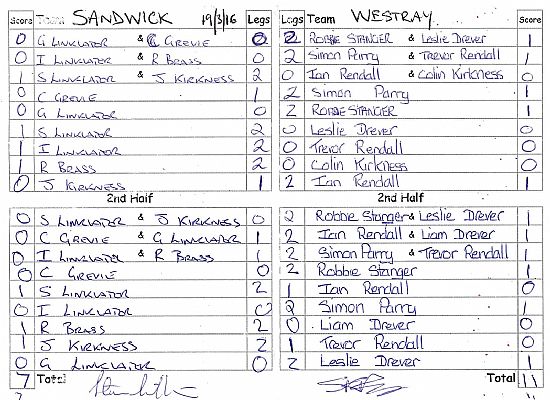 Score Team SANDWICK 19/3/16 Legs Legs Team WESTRAY Score
0 G LINKLATOR & C GREVIE 0 2 ROBBIE STANGER & Leslie Drever 1
0 I LINKLATOR & R BRASS 0 2 Simon Parry & Trevor Rendall 1
1 S LINKLATOR & J KIRKNESS 2 0 Ian Rendall & Colin Kirkness 0
0 C GREVIE 1 2 Simon Parry 1
0 G LINKLATOR 0 2 ROBBIE STANGER 1
1 S LINKLATOR 2 0 Leslie Drever 0
1 I LINKLATOR 2 0 Trevor Rendall 0
1 R BRASS 2 0 Colin Kirkness 0
0 J KIRKNESS 1 2 Ian Rendall 1
2nd Half 2nd Half
0 S LINKLATOR & J KIRKNESS 0 2 Robbie Stanger & Leslie Drever 1
0 C GREVIE & G LINKLATOR 1 2 Ian Rendall & Liam Drever 1
0 I LINKLATOR & R BRASS 1 2 Simon Parry & Trevor Rendall 1
0 C GREVIE 0 2 Robbie Stanger 1
1 S LINKLATOR 2 1 Ian Rendall 0
0 I LINKLATOR 0 2 Simon Parry 1
1 R BRASS 2 0 Liam Drever 0
1 J KIRKNESS 2 1 Trevor Rendall 0
0 G LINKLATOR 0 2 Leslie Drever 1
7 Total Total 11